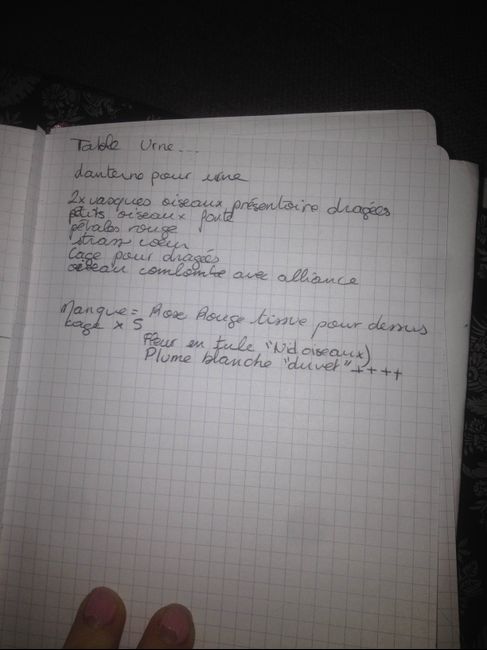 Table Urne...
lanterne pour urne
2x vasques oiseaux présentoire dragées
petits oiseaux fonte
pétales rouge
strass coeur
Cage pour dragés
oiseau comlombe avec alliance
Manque = Rose Rouge tissue pour dessus
cage x 5
Fleur en tule "Nid oiseaux)
Plume blanche "duvet" ++++